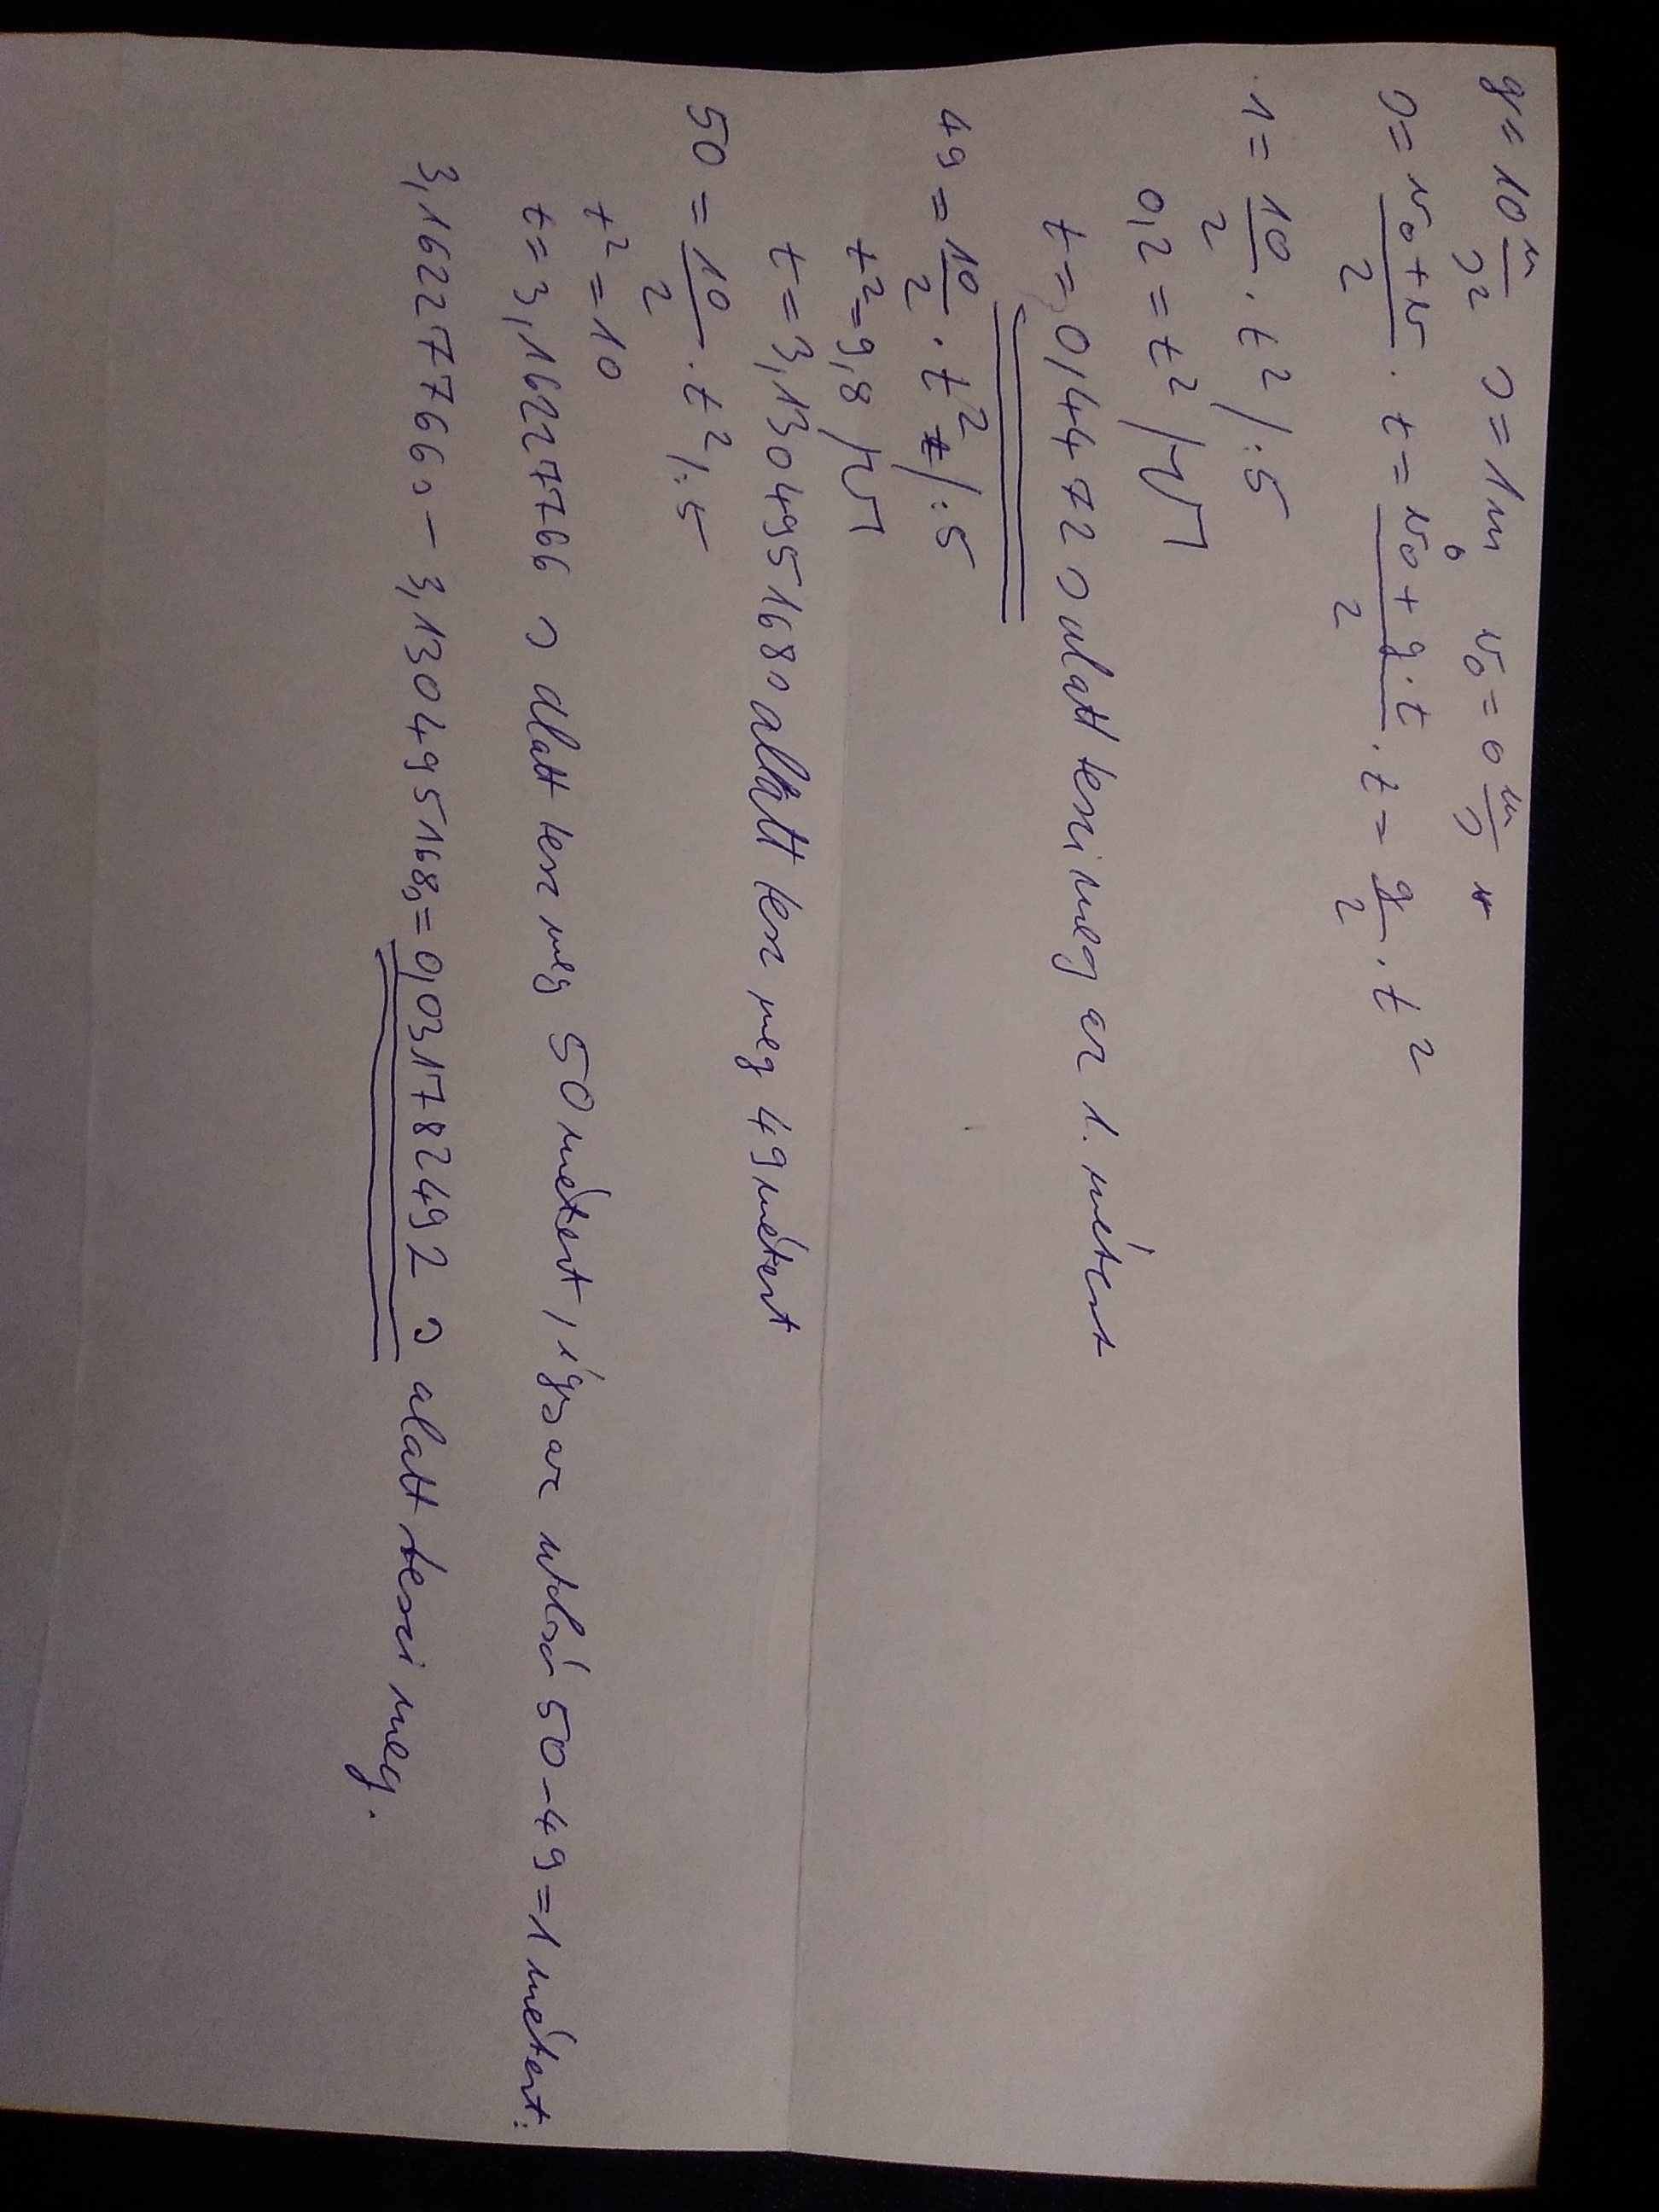 g = 10 m/s² s = 1m v₀ = 0 m/s
s = (v₀+v)/2 · t = (v₀+g·t)/2 · t = g/2 · t²
1 = 10/2 · t² /:5
0,2 = t² /√
t = 0,4472 s alatt teszi meg az 1. métert
49 = 10/2 · t² /:5
t² = 9,8 /√
t = 3,130495168 s allatt tesz meg 49 métert
50 = 10/2 · t² /:5
t² = 10
t = 3,16227766 s alatt tesz meg 50 métert, így az utolsó 50-49=1 métert:
3,16227766 s - 3,130495168 s = 0,031782492 s alatt teszi meg.